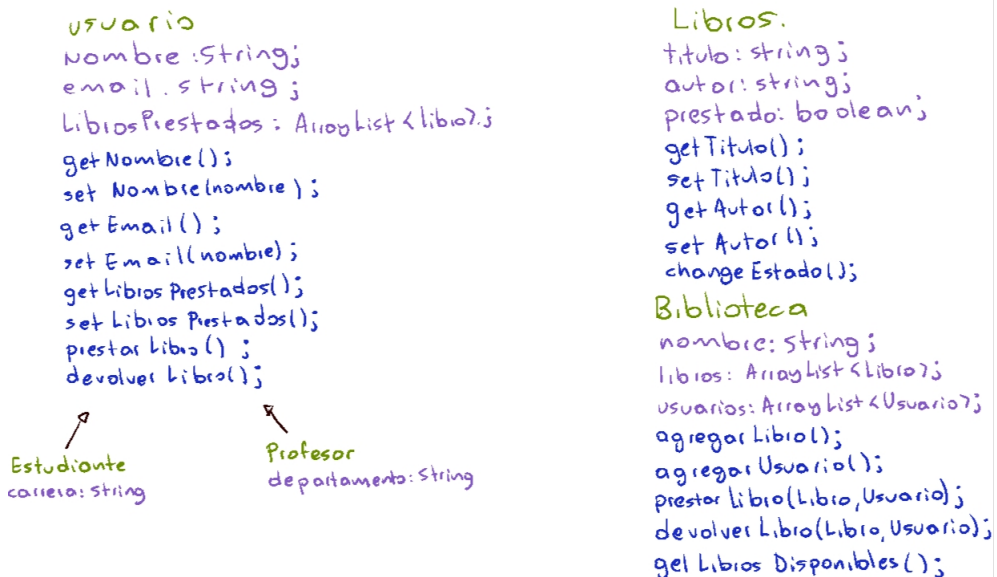 usuario
Nombre :String;
email. string ;
LibrosPrestados : ArrayList <libro>.;
getNombre();
set Nombre(nombre) ;
getEmail() ;
set Email(nombre);
getLibros Prestados();
set Libros Prestados();
prestar Libro() ;
devolver Libro();
Estudiante
carrera: String
Profesor
departamento: String
Libros.
titulo: string ;
autor: string;
prestado: boolean;
getTitulo() ;
setTitulo();
getAutor();
set Autor();
change Estado();
Biblioteca
nombre: String ;
libros: ArrayList <Libro>;
usuarios: ArrayList <Usuario>;
agregar Libro();
agregar Usuario();
prestar Libro(Libro, Usuario);
devolver Libro(Libro, Usuario);
get Libros Disponibles();